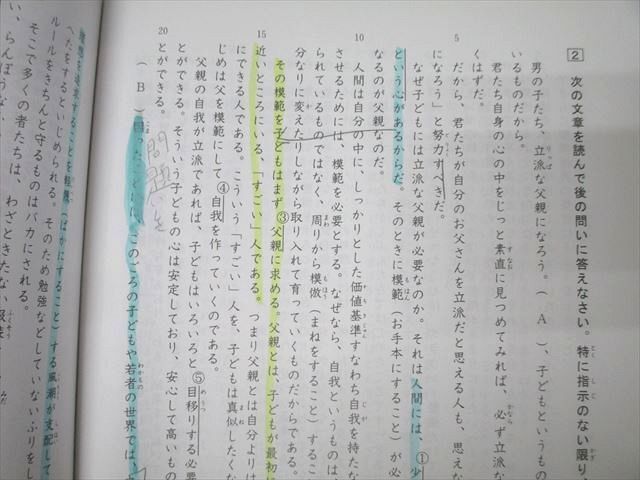 2 次の文章を読んで後の問いに答えなさい。特に指示のない限り、
男の子たち、立派な父親になろう。( A )、子どもというもの
いるものだから。
君たち自身の心の中をじっと素直に見つめてみれば、必ず立派な
くはずだ。
5
だから、君たちが自分のお父さんを立派だと思える人も、思えな
になろう」と努力すべきだ。
なぜ子どもには立派な父親が必要なのか。それは人間には、①少
という心があるからだ。そのときに模範(お手本にすること)が必
なるのが父親なのだ。
10
人間は自分の中に、しっかりとした価値基準すなわち自我を持たな
させるためには、模範を必要とする。なぜなら、自我というものは
られているものではなく、周りから模倣(まねをすること)するこ
分なりに変えたりしながら取り入れて育っていくものだからである。
その模範を子どもはまず③父親に求める。父親とは、子どもが最初に
15
近いところにいる、「すごい」人である。つまり父親とは自分よりは
にできる人である。こういう「すごい」人を、子どもは真似したくな
じめは父を模範にして④自我を作っていくのである。
父親の自我が立派であれば、子どもはいろいろと⑤目移りする必要
とができる。そういう子どもの心は安定しており、安心して高いもの
20
とができる。
( B )困ったことに、このごろの子どもや若者の世界では、
問題
理想を追求することを軽蔑(ばかにすること)する風潮が支配して
へたをするといじめられる。そのため勉強などしていないふりをし
ルールをきちんと守るものはバカにされる。
そこで多くの者たちは、わざときたない服装
い、らんぼうな